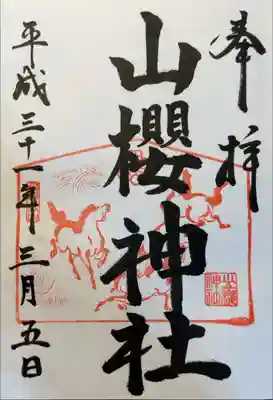 奉拝
山櫻神社
平成三十一年三月五日